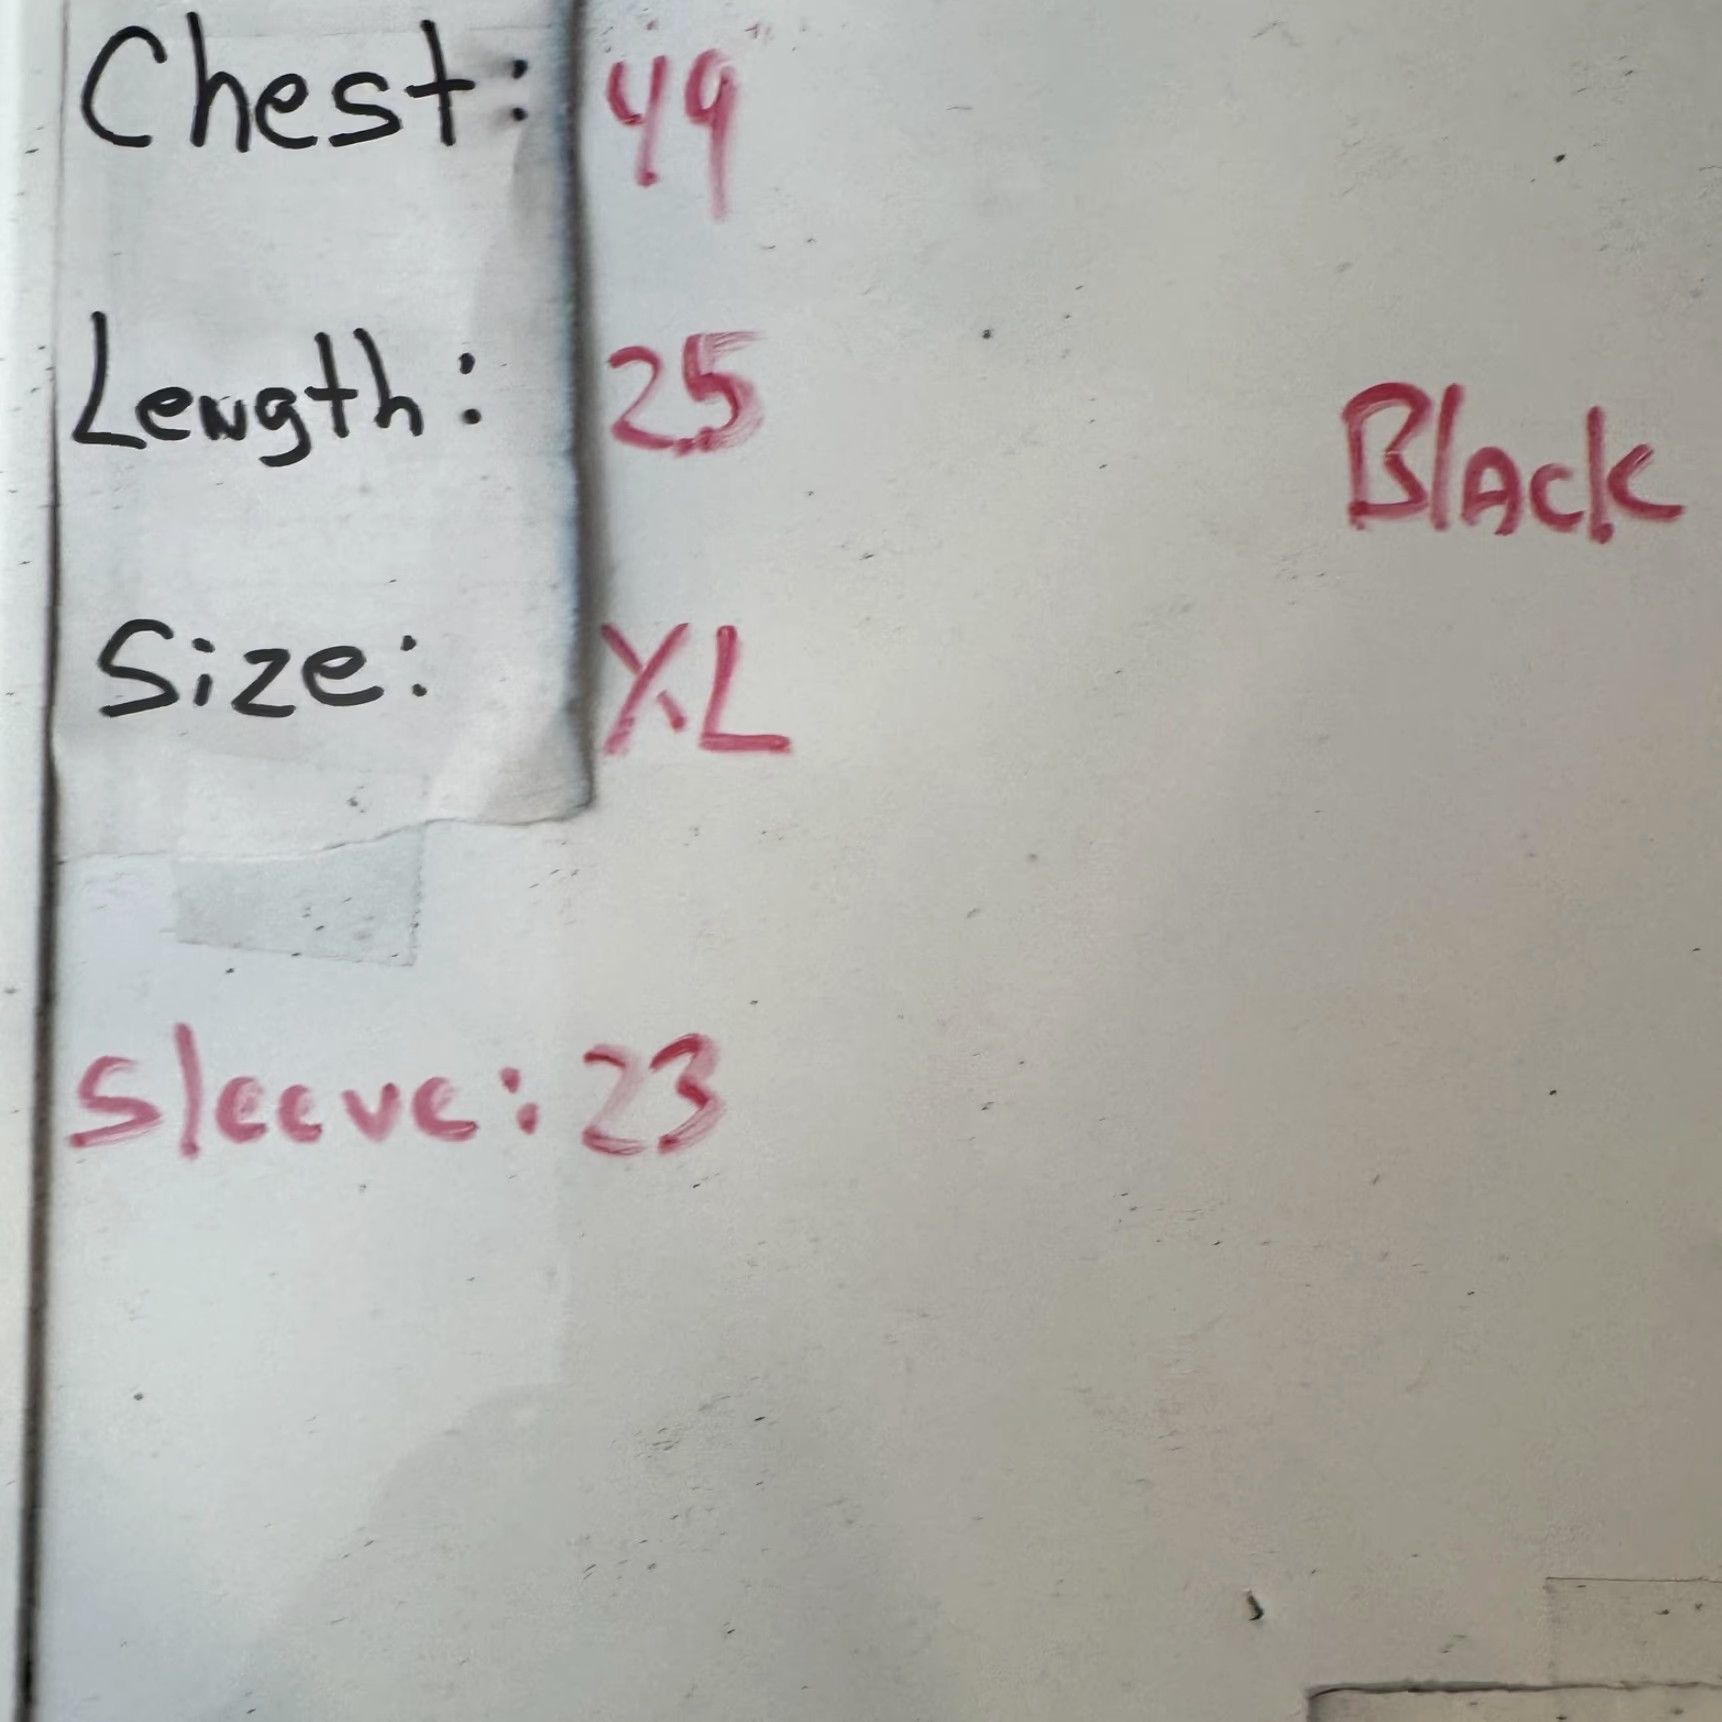 Chest: 49
Length: 25
Black
Size: XL
Sleeve: 23